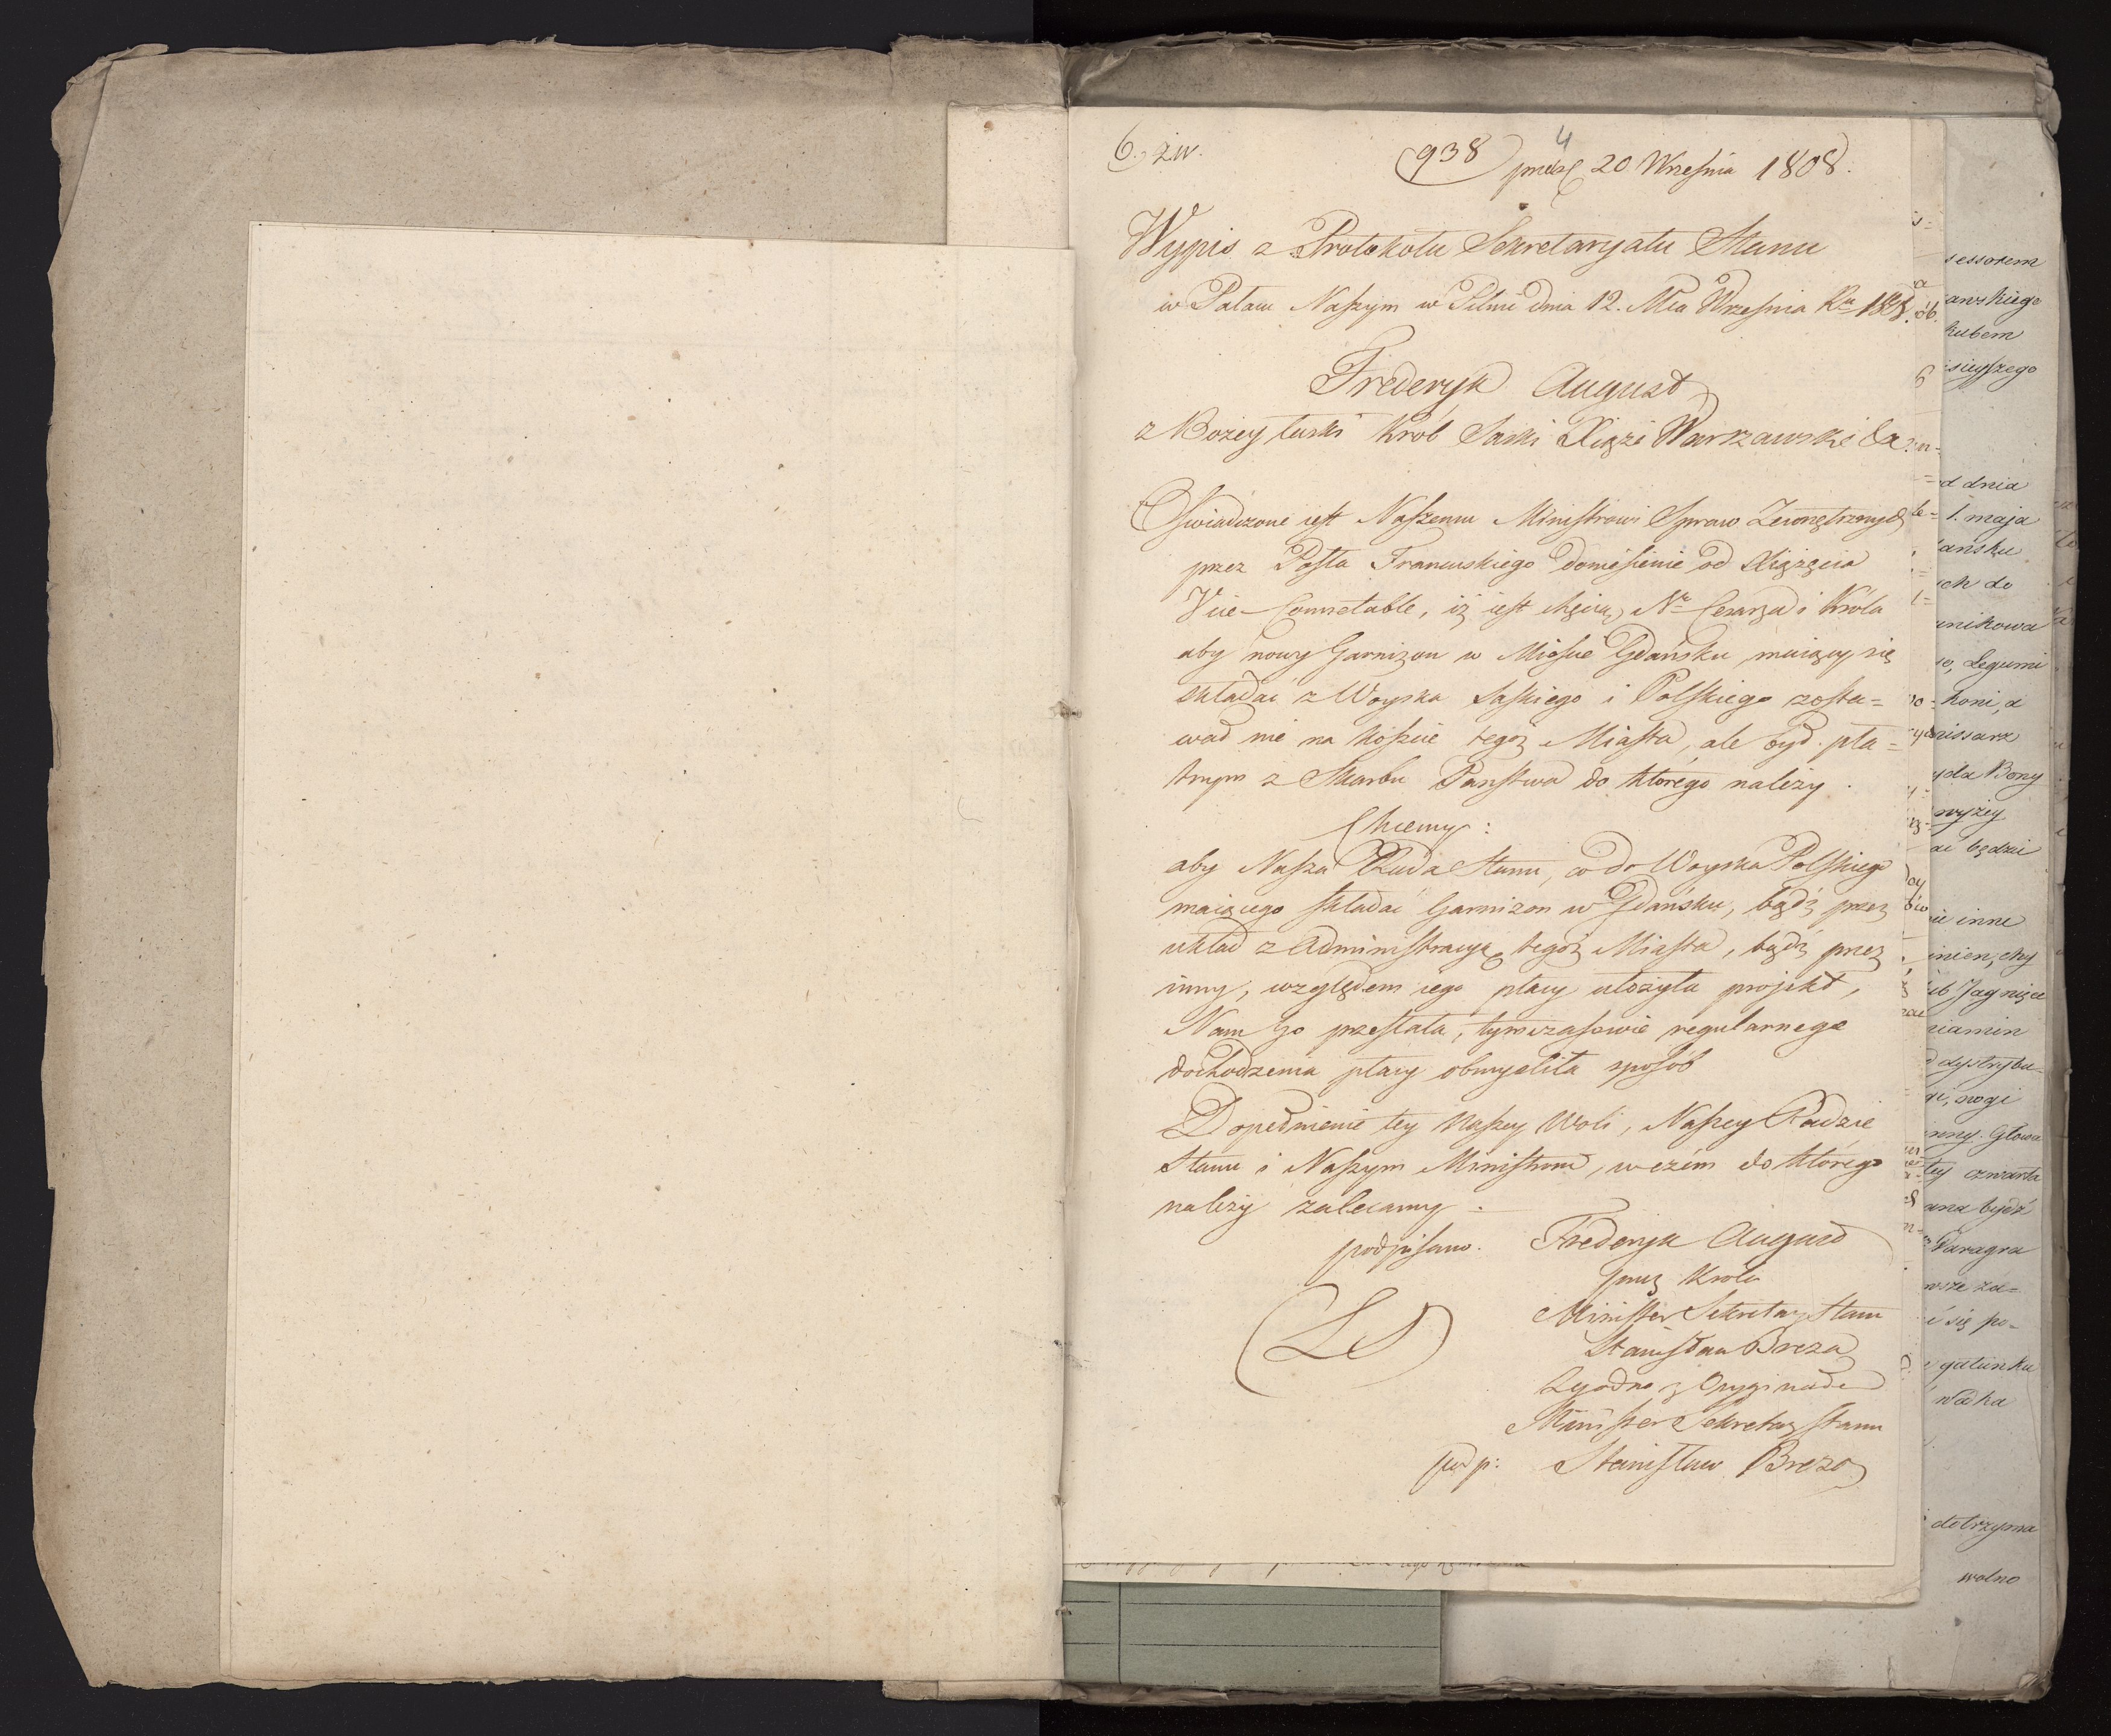 6.
938
4
20 Września 1808.
Wypis z Protokołu Sekretaryatu Stanu
w Pałacu Naszym w Pilnie dnia 12. Mca Września Ru 1808.
Frederyk August
z Bożey łaski Król Saski Xiąże Warszawski &a:
Oświadczone iest Naszemu Ministrowi Spraw Zewnętrznych
przez Posła Francuskiego doniesienie od Xiążęcia
Vice-Connetable, iż iest chęcią Nu Cesarza i Króla
aby nowy Garnizon w Mieście Gdańsku, maiący się
składać z Woyska Saskiego i Polskiego zosta=
wał nie na koszcie tegoż Miasta, ale był pła=
tnym z Skarbu Państwa do którego należy.
Chcemy:
aby Nasza Rada Stanu, co do Woyska Polskiego
maiącego składać Garnizon w Gdańsku, bądź przez
układ z Administracyą tegoż Miasta, bądź przez
inny, względem iego płacy ułożyła projekt,
Nam Go przesłała, tymczasowie regularnego
dochodzenia płacy obmyśliła sposób
Dopełnienie tey Naszey Woli, Naszey Radzie
Stanu i Naszym Ministrom, w czém do którego
należy zalecamy.
podpisano. Frederyk August
przez Króla
Minister Sekretarz Stanu
Stanisław Breza
LS
Zgodno z Oryginałem
Minister Sekretarz Stanu
podp: Stanisław Breza
sessorem
awskiego
kubem
d dnia
1. maja
dańsku
ych do
unikowa
Legumi
koni, a
missarz
yda Bony
wyżey
będzie
inne
Jagnięce
niamin
dystrybu=
nogi
Głowa
tey czwarta
ana bydź
Paragra
się po=
gatunku
Wódka
dotrzyma
wolno